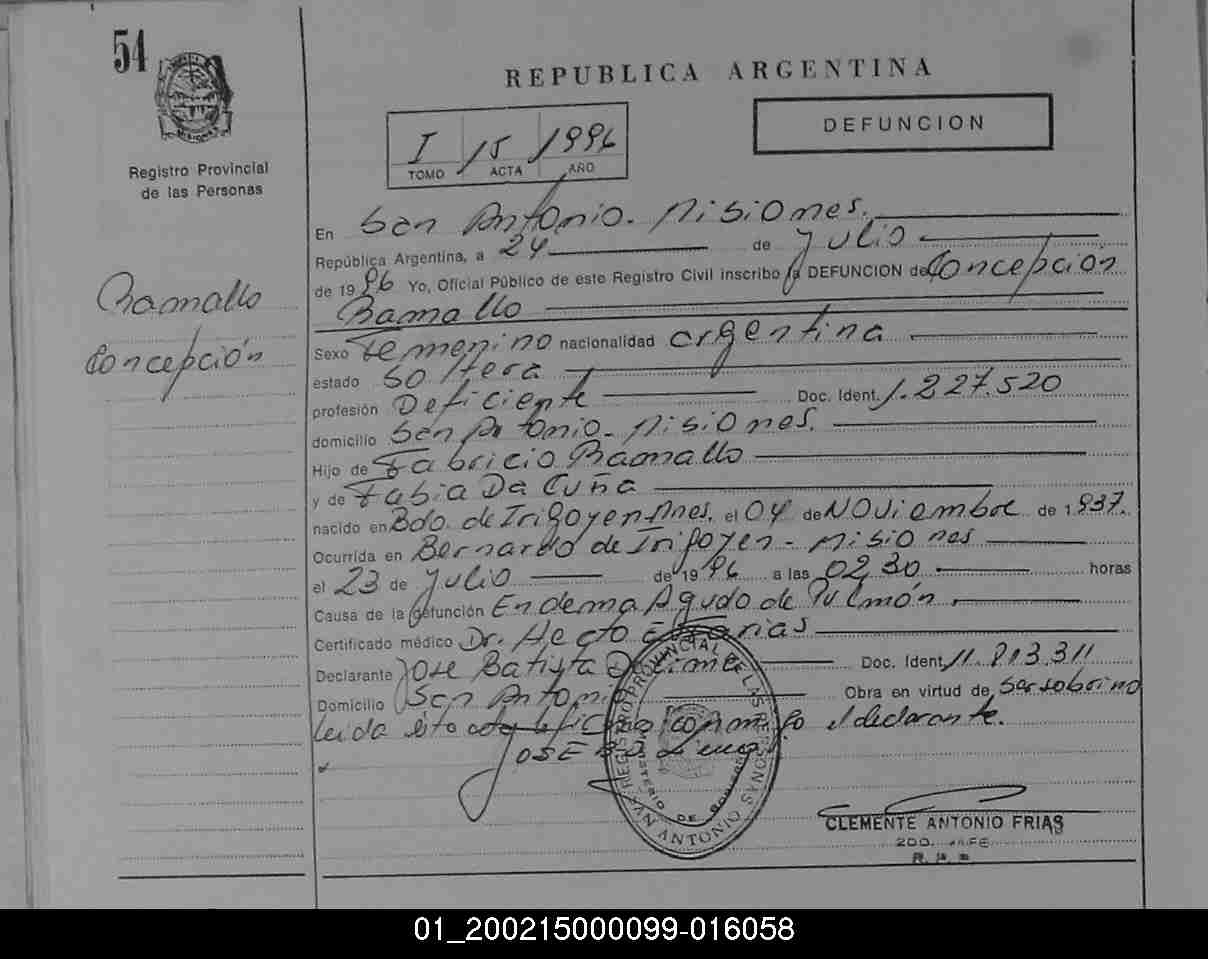 54
REPUBLICA ARGENTINA
DEFUNCION
I / 15 / 1996
TOMO ACTA AÑO
Registro Provincial
de las Personas
Ramallo
Concepción
En San Antonio - Misiones.
República Argentina, a 24 de Julio
de 1996 Yo, Oficial Público de este Registro Civil inscribo la DEFUNCION de Concepción
Ramallo
Sexo Femenino nacionalidad argentina
estado Soltera
profesión Deficiente Doc. Ident. 1.227.520
domicilio San Antonio - Misiones.
Hijo de Fabricio Ramallo
y de Fabia Da Cuña
nacido en Bdo. de Irigoyen Mnes. el 04 de Noviembre de 1.937.
Ocurrida en Bernardo de Irigoyen - Misiones
el 23 de Julio de 1996 a las 02,30 horas
Causa de la defunción Endema Agudo de Pulmón.
Certificado médico Dr. Hecto
Declarante Jose Batista De Lima Doc. Ident. 11.813.311
Domicilio San Antonio Obra en virtud de ser sobrino
leida ésta acta conmigo el declarante.
JOSE B D Lima
REGISTRO PROVINCIAL DE LAS PERSONAS
MINISTERIO DE GOBIERNO
SAN ANTONIO
CLEMENTE ANTONIO FRIAS
2DO. JEFE
01_200215000099-016058